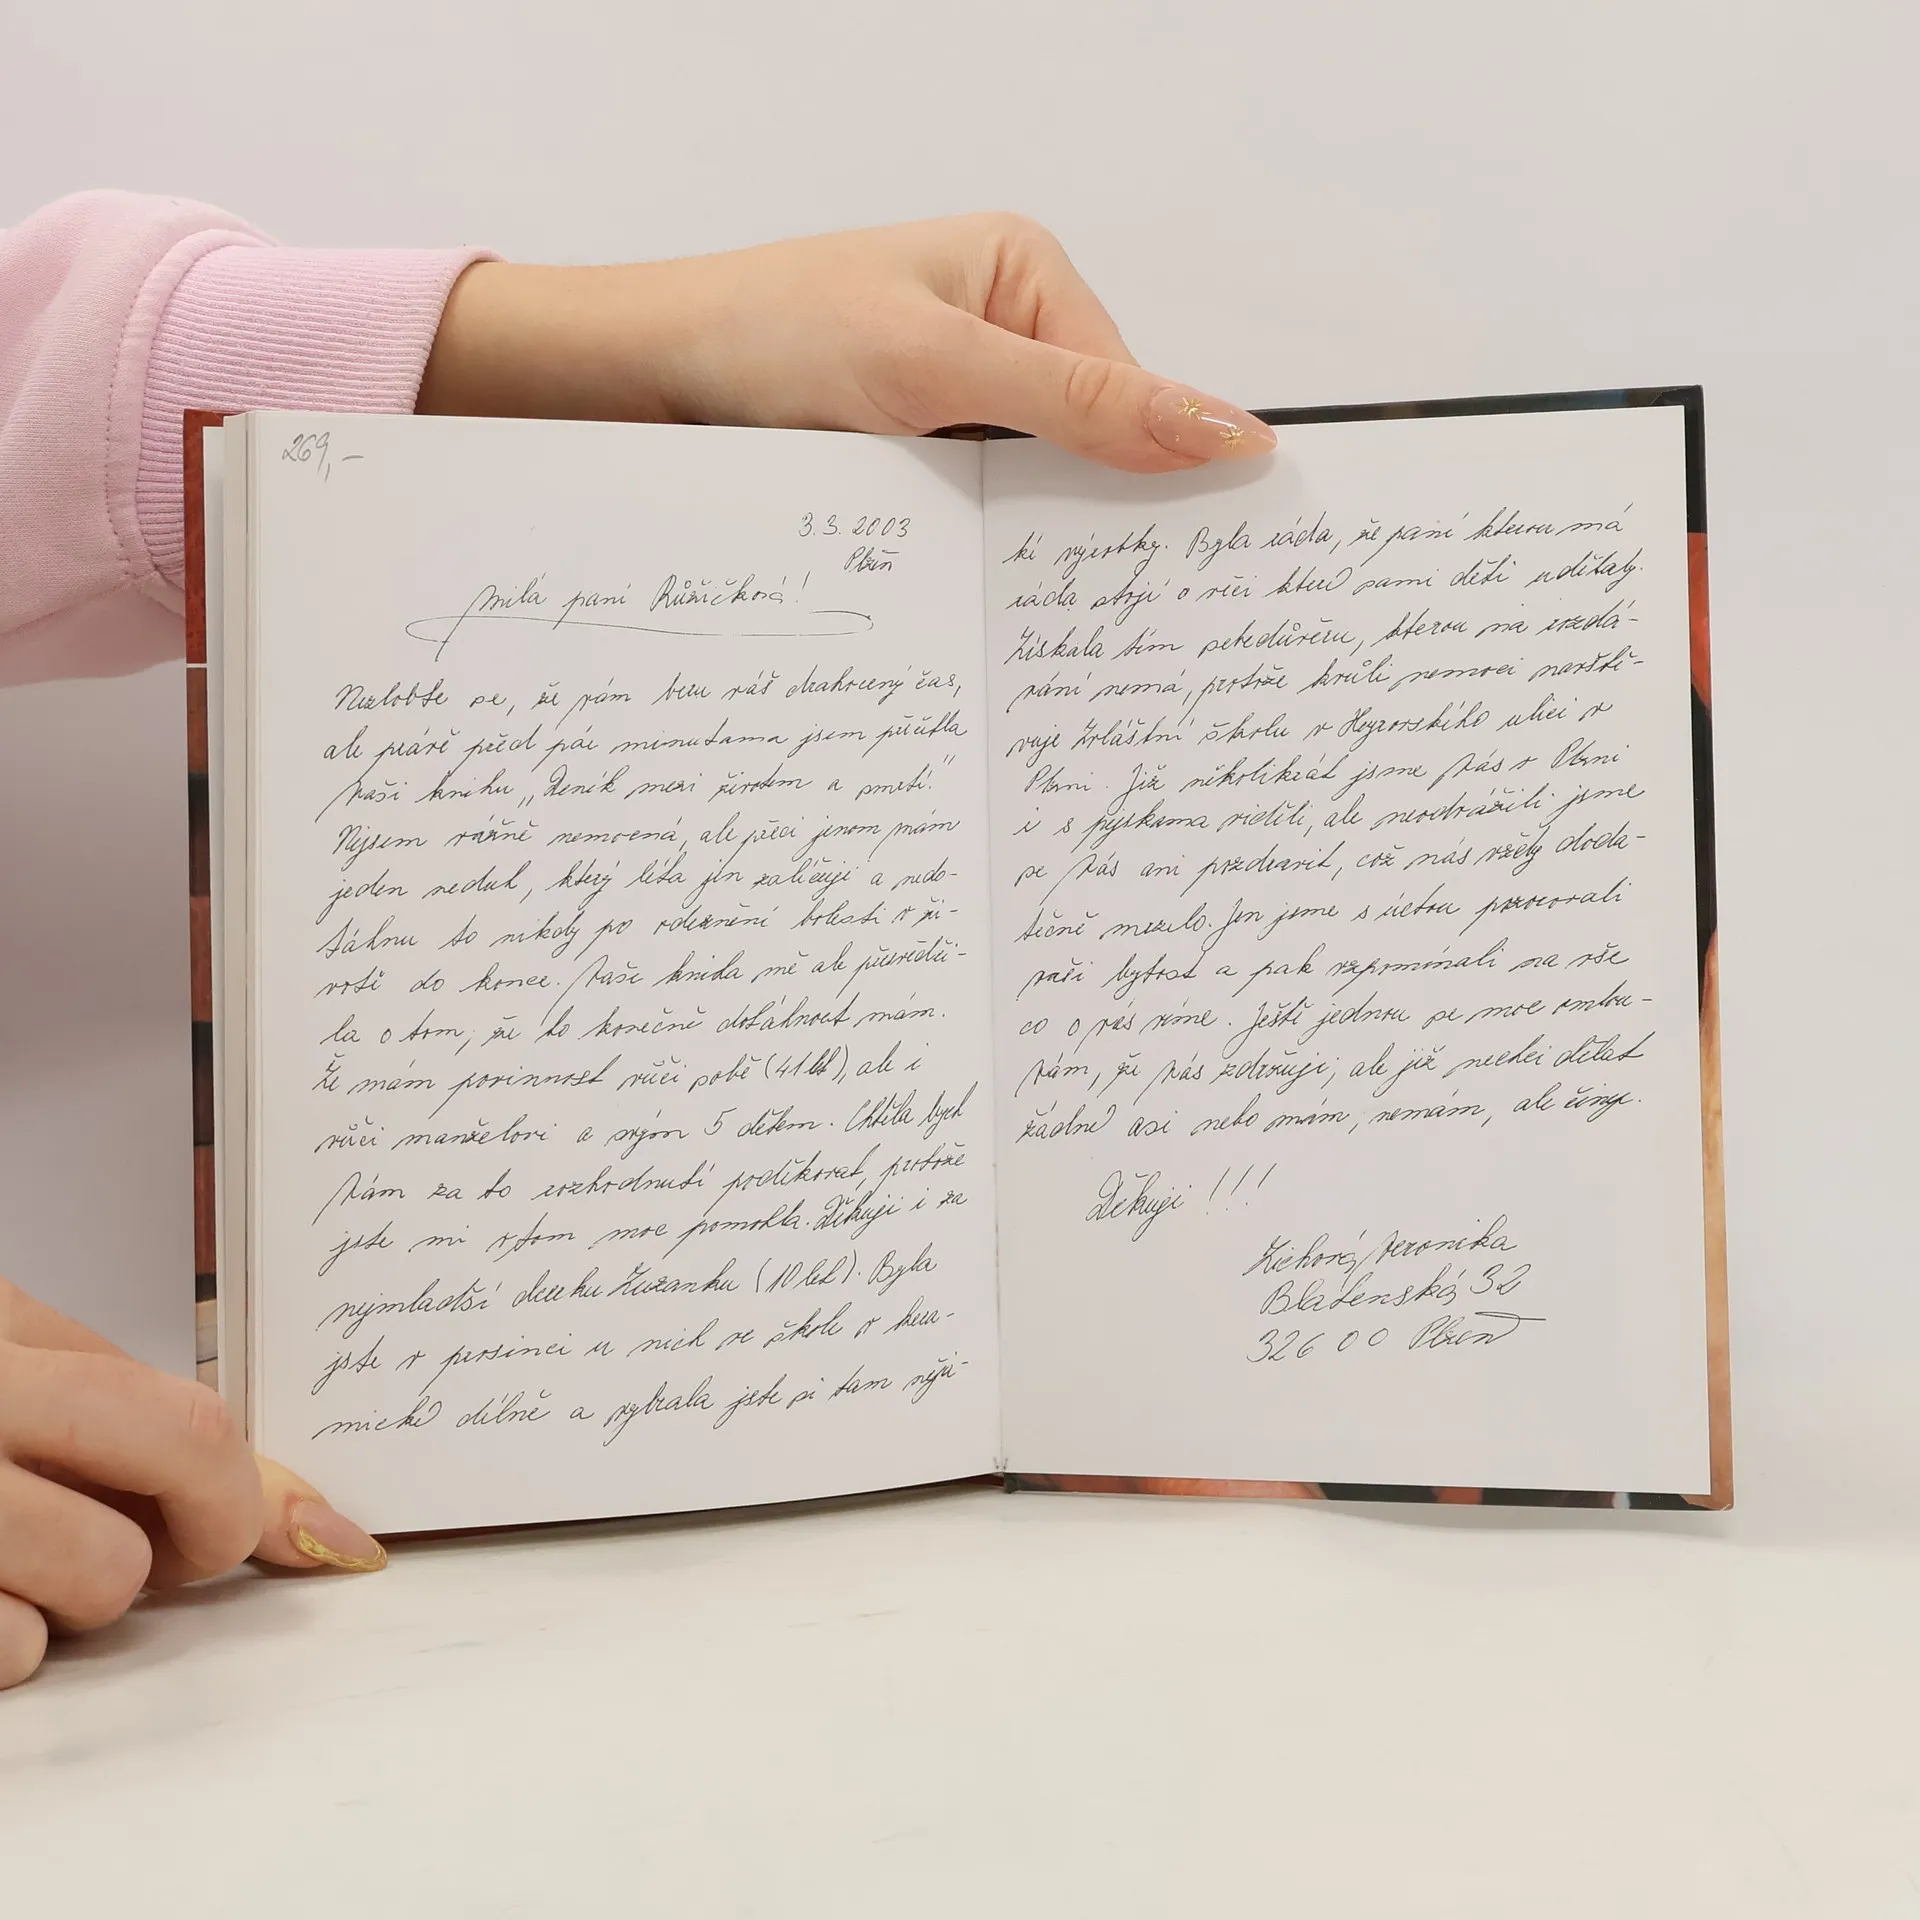 269,-
3.3.2003
Plzeň
Milá paní Růžičková!
Nezlobte se, že vám beru váš drahocený čas,
ale právě před pár minutama jsem přečetla
Vaši knihu „Deník mezi životem a smrtí."
Nejsem vážně nemocná, ale přeci jenom mám
jeden neduh, který léta jen zaléčuji a nedo-
táhnu to nikdy po odeznění bolesti v ži-
votě do konce. Vaše kniha mě ale přesvědči-
la o tom, že to konečně dotáhnout mám.
Že mám povinnost vůči sobě (41 let), ale i
vůči manželovi a svým 5 dětem. Chtěla bych
Vám za to rozhodnutí poděkovat, protože
jste mi v tom moc pomohla. Děkuji i za
nejmladší dcerku Zuzanku (10 let). Byla
jste v prosinci u nich ve škole v kera-
mické dílně a vybrala jste si tam něja-
ké výrobky. Byla ráda, že paní kterou má
ráda stojí o věci které sami děti udělaly.
Získala tím sebedůvěru, kterou na vzdá-
vání nemá, protože kvůli nemoci navště-
vuje Zvláštní školu v Heyrovského ulici v
Plzni. Již několikrát jsme Vás v Plzni
i s pejskama viděli, ale neodvážili jsme
se Vás ani pozdravit, což nás vždy doda-
tečně mrzelo. Jen jsme s úctou pozorovali
vaši bytost a pak vzpomínali na vše
co o vás víme. Ještě jednou se moc omlou-
vám, že Vás zdržuji, ale již nechci dělat
žádné asi nebo mám, nemám, ale činy.
Děkuji!!!
Zichová Veronika
Blatenská 32
326 00 Plzeň